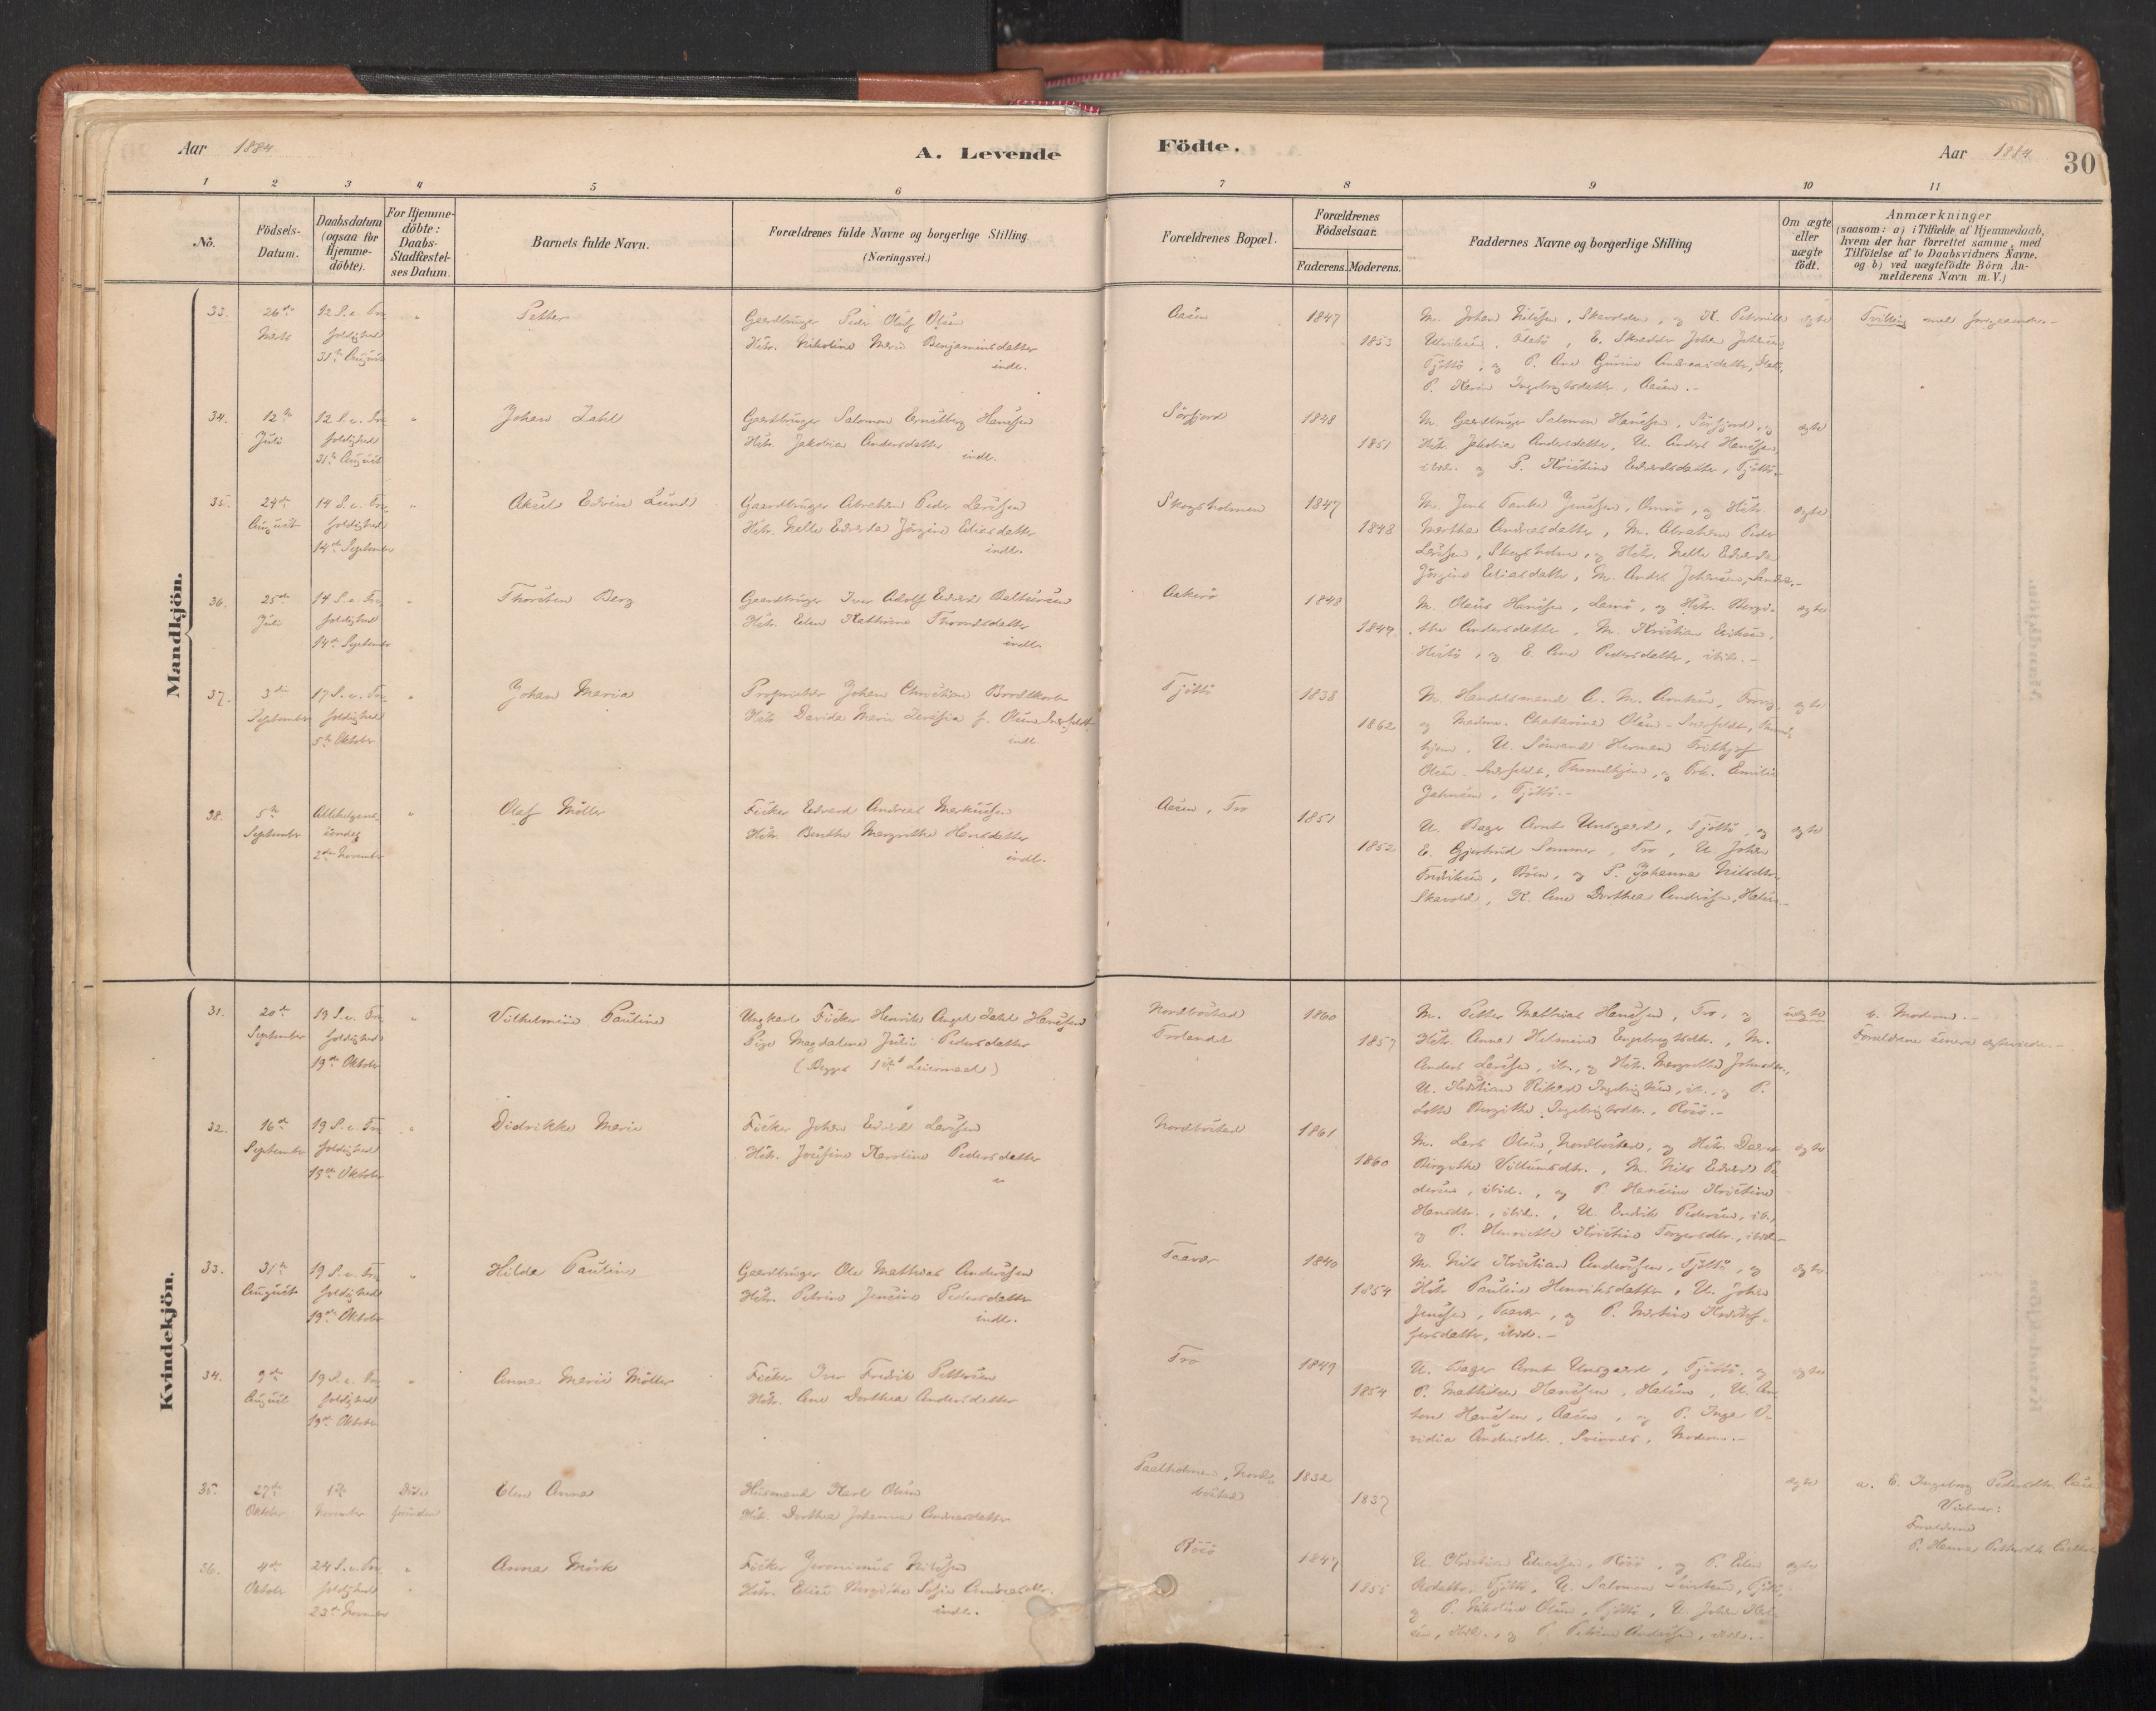 Aar 1884
A. Levende
Födte.
Aar 1884
30
1 2 3 4 5 6 7 8 9 10 11
No.
Födsels-
Datum.
Daabsdatum
(ogsaa for
Hjemme-
döbte).
For Hjemme-
döbte:
Daabs-
Stadfæstel-
ses Datum.
Barnets fulde Navn.
Forældrenes fulde Navne og borgerlige Stilling.
(Næringsvei.)
Forældrenes Bopæl.
Forældrenes
Födselsaar.
Faderens.
Moderens.
Faddernes Navne og borgerlige Stilling
Om ægte
eller
uægte
födt.
Anmærkninger
(saasom: a) i Tilfælde af Hjemmedaab,
hvem der har forrettet samme, med
Tilföielse af to Daabsvidners Navne.
og b) ved uægtefödte Börn An-
melderens Navn m. V.)
Mandkjön.
33.
26de
Marts
12 S. e. Tre
foldighed
31te August
"
Petter
Gaardbruger Peder Olaf Olsen
Hstr. Nikoline Marie Benjaminsdatter
indl.
Aasen
1847
1853
M. Johan Nilssen, Skavolden, og K.
E. Skrædder Johan
Tjöttö, og P. Ane Gurine Andreasdatter,
P. Karen Ingebrigtsdatter, Aasen.-
ægte
Tvilling med foregaaende.-
34.
12te
Juli
12 S. e. Tre
foldighed
31te August
"
Johan Zahl
Gaardbruger Salomon Ernstberg Hanssen
Hstr. Jakobia Andersdatter
indl.
Sörfjord
1848
1851
M. Gaardbruger Salomon Hanssen, Sörfjord, og
Hstr. Jakobia Andersdatter, U. Anders Hanssen,
ibid. og P. Kristine Edvardsdatter, Tjöttö.-
ægte
35.
24de
August
14 S. e. Tre
foldighed
14de September
"
Aksel Edvin Lund
Gaardbruger Abraham Peder Larssen
Hstr. Nelle Edvarda Jörgine Eliasdatter
indl.
Skogsholmen
1847
1848
M. Jens Jenssen, og Hstr.
Martha Andreasdatter, M. Abraham Peder
Larssen, Skogsholm, og Hstr. Nelle Edvarda
Jörgine Eliasdatter, M. Anders Johansen,
ægte
36.
25de
Juli
14 S. e. Tre
foldighed
14de September
"
Thorsten Berg
Gaardbruger Iver Adolf Edvard Baltsersen
Hstr. Elen Kathrine Thomsdatter
indl.
Aakerö
1848
1849
M. Olaus Hanssen, og Hstr. Bergi-
the Andersdatter, M. Kristian Eriksen,
og E. Ane Pedersdatter, ibid.-
ægte
37.
3die
September
17 S. e. Tre
foldighed
5te Oktober
"
Johan Maria
Proprietær Johan Christian Brodtkorb
Hstr. Davida Marie f. Olsen
indl.
Tjöttö
1838
1862
M. Handelsmand A. M.
og Madme. Chatarine Olsen-
U. Sömand Herman Frithjof
Olsen-
Tjöttö.-
ægte
38.
5te
September
Allehelgens
söndag
2den November
"
Olaf Möller
Fisker Edvard Andreas Markussen
Hstr. Benthe Margrethe Hansdatter
indl.
Aasen, Tro
1851
1852
U. Bager Arnt Unsgaard, Tjöttö, og
E. Gjertrud Sommer, Tro, U. Johan
Fredriksen, og P. Johanna Nilsdtr.
Skavold, K. Ane Dorthea
ægte
Kvindekjön.
31.
20de
September
19 S. e. Tre
foldighed
19de Oktober
"
Vilhelmine Pauline
Ungkarl Fisker Henrik Angel Zahl Hanssen
Pige Magdalene Julie Pedersdatter
(Begges 1ste Leiermaal)
Nordbostad
Torlandet
1860
1857
M. Petter Mathias Hanssen, Tro, og
Hstr. Anne Helmine Engebregtsdtr., M.
Anders Larssen, ib., og Hstr. Margrethe
U. Kristian Rikard Ingebrigtsen, ib., og P.
Lotte Bergithe Ingebrigtsdtr., Rösö.-
uægte
b. Moderen.-
Forældrene senere ægteviede.-
32.
16de
September
19 S. e. Tre
foldighed
19de Oktober
"
Didrikke Marie
Fisker Johan Edvard Larssen
Hstr. Josefine Karoline Pedersdatter
"
Nordbostad
1861
1860
M. Lars Olsen, Nordbostad, og Hstr.
Birgithe Villumsdtr., M. Nils Edvard Pe
dersen, ibid., og P. Hansine Kristine
Hansdtr., ibid., U. Endrik Pedersen, ib.,
og P. Henriette Kristine Torgersdtr., ibid.-
ægte
33.
31te
August
19 S. e. Tre
foldighed
19de Oktober
"
Hilda Pauline
Gaardbruger Ole Mathias Anderssen
Hstr. Petrine Jensine Pedersdatter
indl.
Taavær
1840
1854
M. Nils Kristian Anderssen, Tjöttö, og
Hstr Pauline Henriksdatter, U. Johan
Jenssen, Taavær, og P. Martine Kristof-
fersdatter, ibid.-
ægte
34.
9de
August
19 S. e. Tre
foldighed
19de Oktober
"
Anna Marie Möller
Fisker Iver Fredrik Pettersen
Hstr. Ane Dorthea Andersdatter
Tro
1849
1854
U. Bager Arnt Unsgaard, Tjöttö, og
P. Mathilde Hanssen, U. An
ton Hanssen, Aasen, og P. Inga O-
vidia Andersdtr., Moderen.-
ægte
35.
27de
Oktober
1ste
November
Död
forinden
Elen Anna
Husmand Karl Olsen
Hstr. Dorthea Johanna Andreasdatter
Paalholmen, Nord-
bostad
1832
1837
ægte
a. E. Ingeborg Pedersdtr.
Vidner:
Forældrene
P. Hanna Pettersdtr.
36.
4de
Oktober
24 S. e. Tre
foldighed
23de November
"
Anna Mörk
Fisker Jeronimus Nilssen
Hstr. Elise Bergithe Sofie Andreasdtr.
indl.
Rösö
1847
1855
U. Kristian Eliassen, Rösö, og P. Elen
Tjöttö, U. Salomon
og P. Nikoline Olsen, Tjöttö, U. Johan
ibid., og P. Petrine Anderssen, ibid.-
ægte